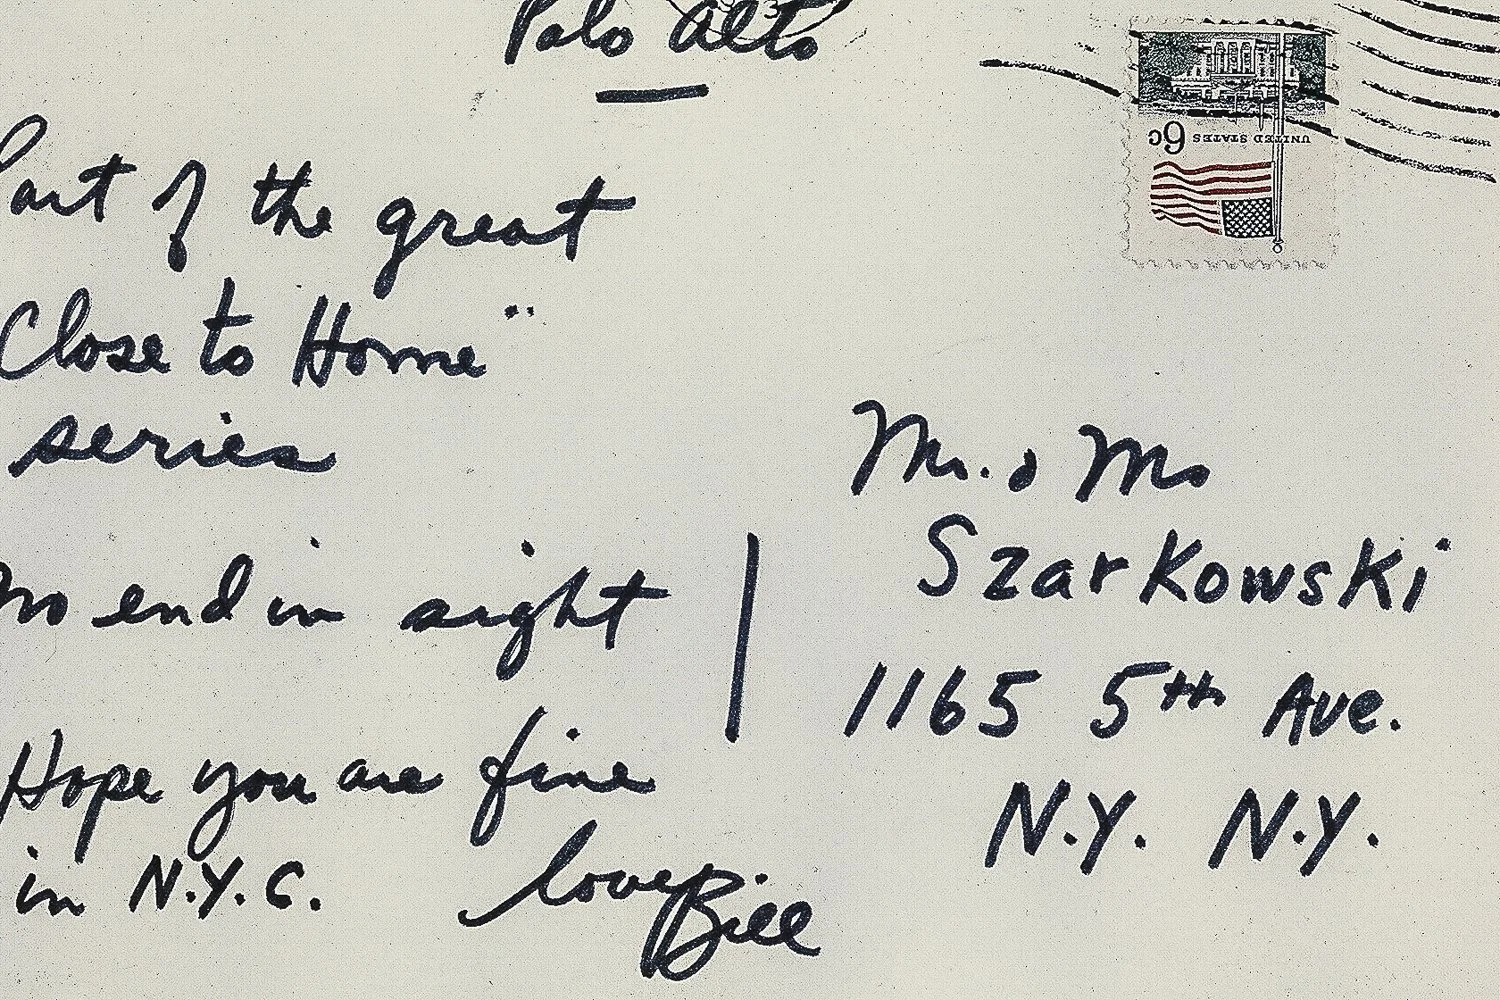 Palo Alto
Part of the great
Close to Home"
series
No end in sight
Hope you are fine
in N.Y.C.
love, Bill
6c UNITED STATES
Mr. & Ms
Szarkowski
1165 5th Ave.
N.Y. N.Y.